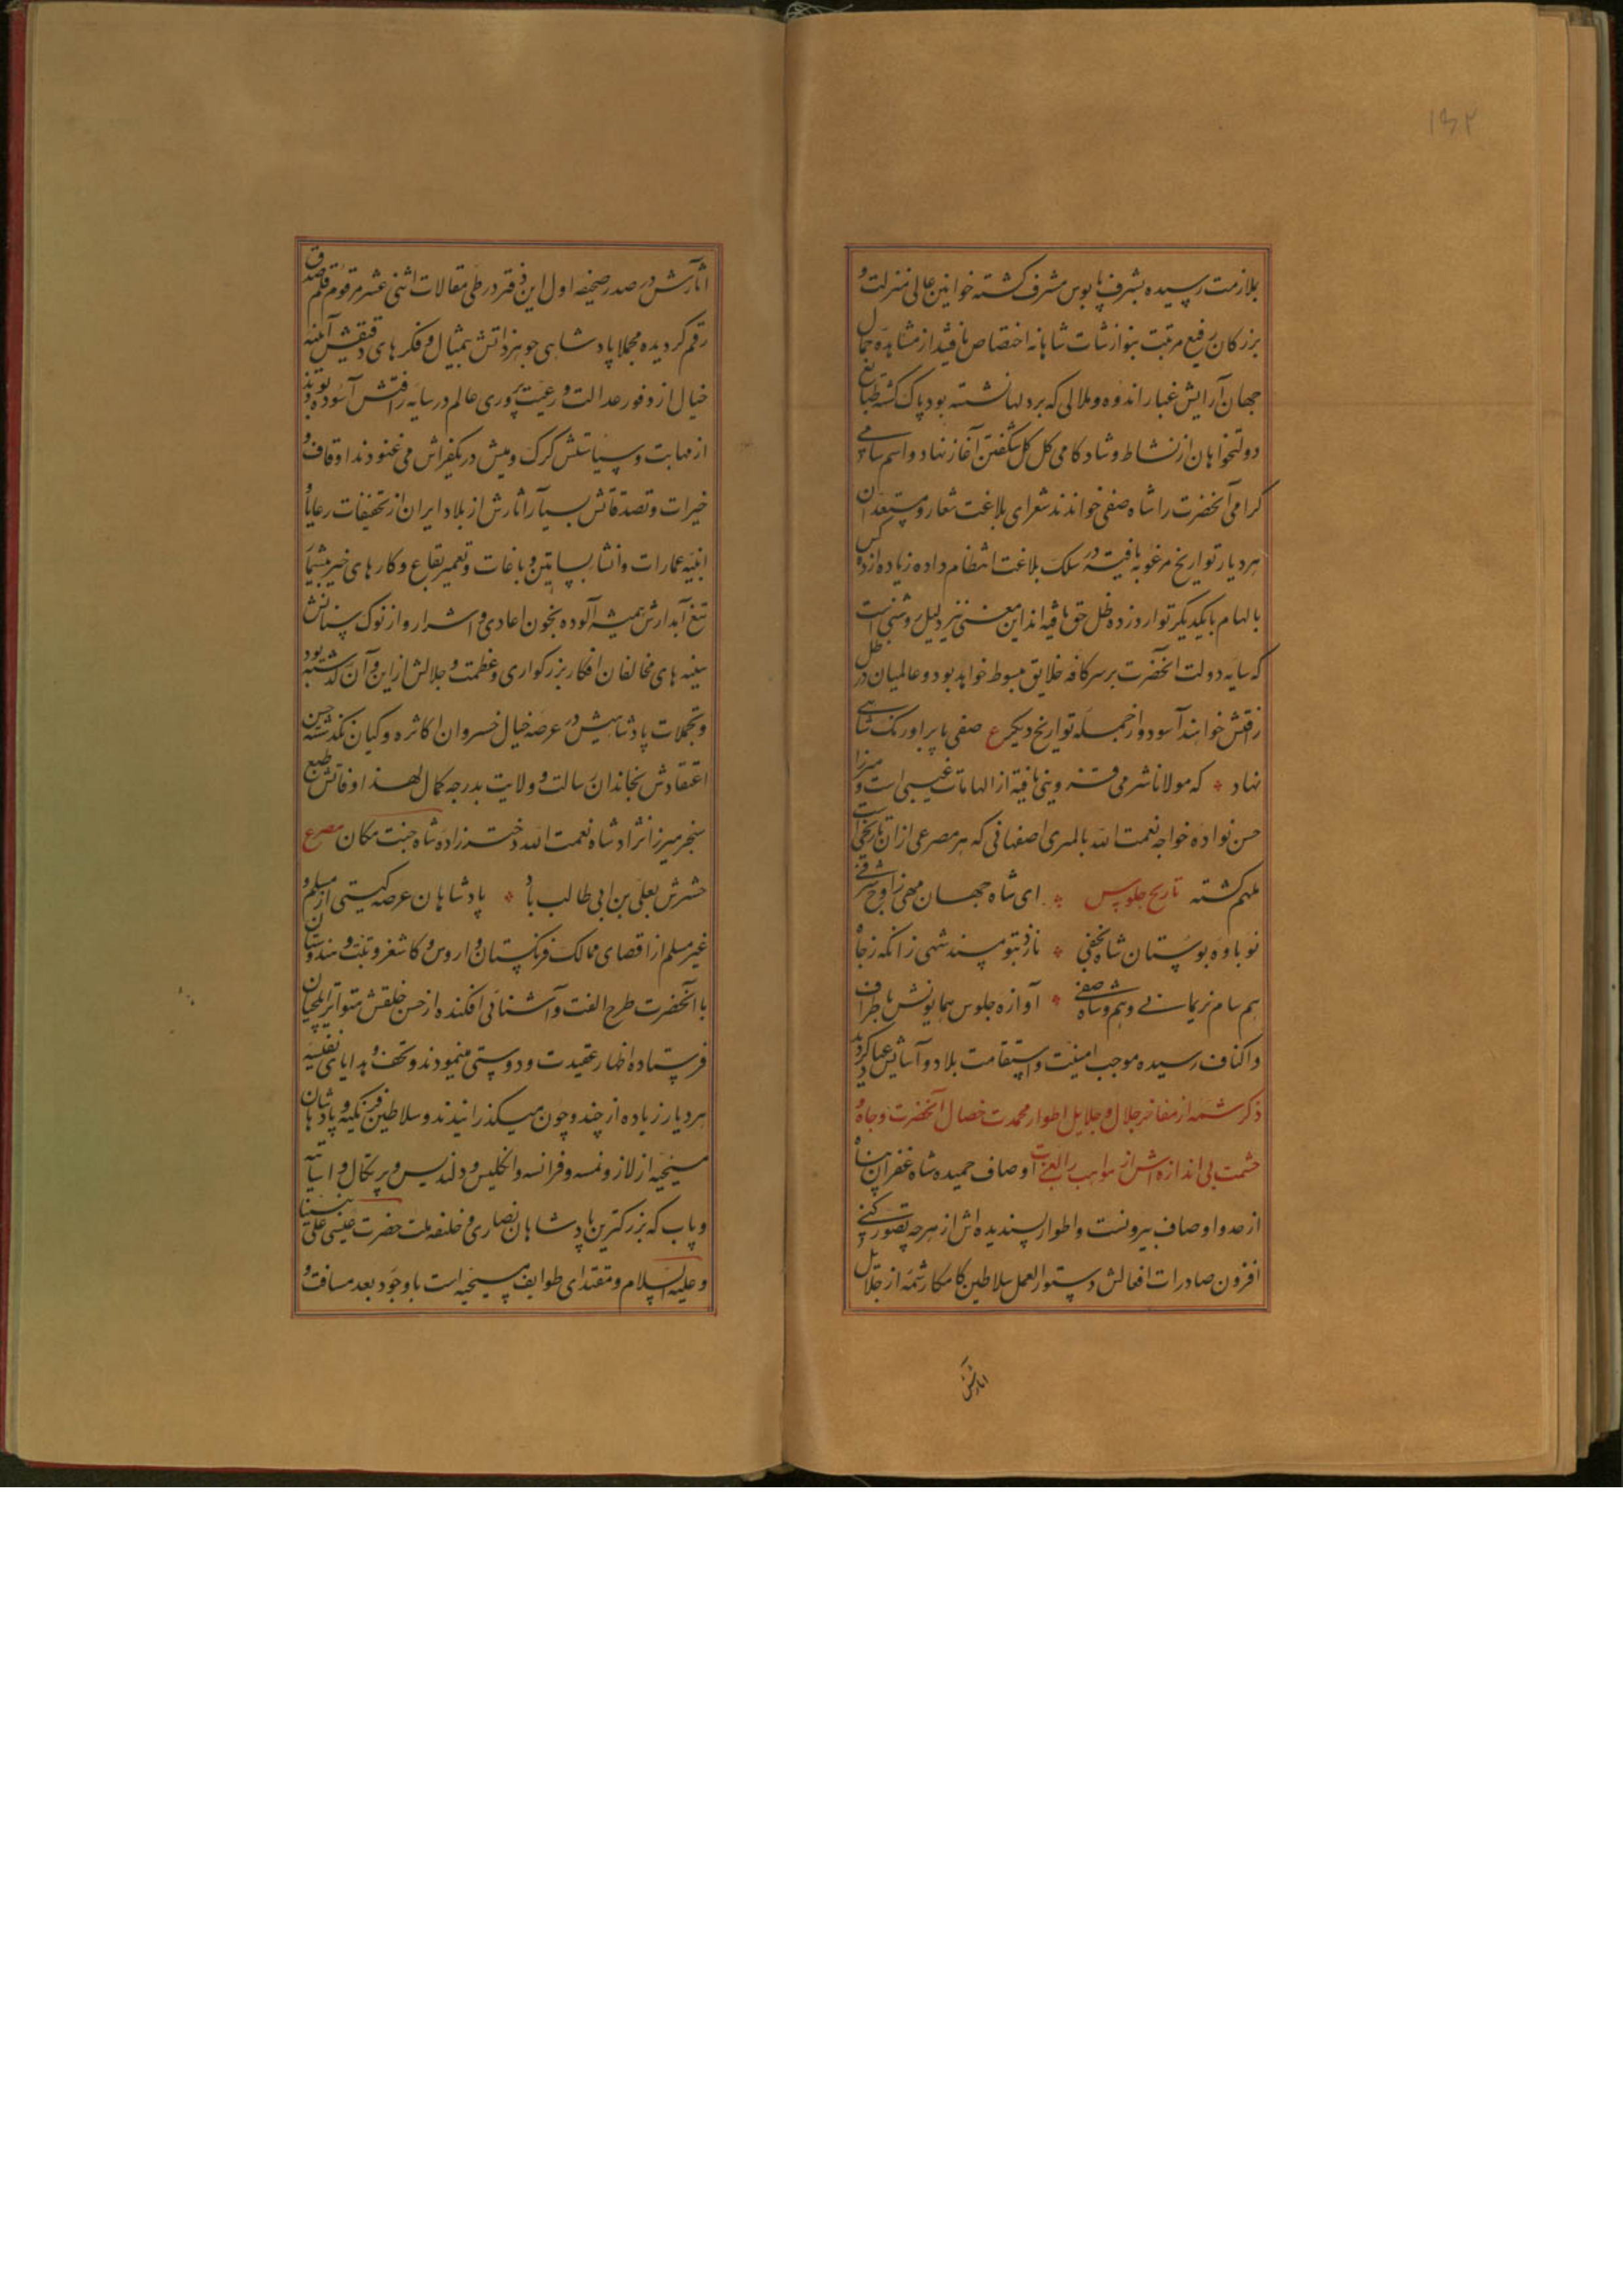 ۱۳۲
بملازمت رسیده بشرف پابوس مشرف گشته خوانین عالی منزلت و
بزرکان رفیع مرتبت بنوازشات شاهانه اختصاص یافتند از مشاهده جمال
جهان آرایش غبار اندوه و ملالی که بر دلها نشسته بود پاک کشته طبایع
دولتخواهان از نشاط و شادکامی کل کل شکفتن آغاز نهاد و اسم سامی
کرامی آنحضرت را شاه صفی خواندند شعرای بلاغت شعار و مستعدان
هر دیار تواریخ مرغوبه یافته در سلک بلاغت انتظام داده زیاده از ده کس
بالهام با یکدیگر توارد زده ظل حق یافته اند این معنی نیز دلیل روشنی است
که سایه دولت آنحضرت بر سر کافه خلایق مبسوط خواهد بود و عالمیان در ظل
رافتش خواهند آسود و از جمله تواریخ دیکر ع صفی پا بر اورنک شاهی
نهاد که مولانا شرمی قزوینی یافته از الهامات غیبی است و میرزا
حسن نواده خواجه نعمت الله بالمری اصفهانی که هر مصرعی از ان تاریخی است
ملهم کشته تاریخ جلوس ای شاه جهان مهی ز اوج شرفی
نوباوه بوستان شاه نجفی نازد بتو مسند شهی زانکه ز جاه
هم سام نریمانی و هم شاه صفی آوازه جلوس همایونش باطراف
و اکناف رسیده موجب امنیت و استقامت بلاد و آسایش عباد کردید
ذکر شمه از مفاخر جلال و جلایل اطوار محمدت خصال آنحضرت و جاه و
حشمت بی اندازه اش از مواهب رب العزت اوصاف حمیده شاه غفران پناه
از حد و اوصاف بیرونست و اطوار پسندیده اش از هر چه تصور کنی
افزون صادرات افعالش دستور العمل سلاطین کامکار شمه از جلایل
آثارش
آثارش در صدر صحیفه اول این دفتر در طی مقالات اثنی عشر مرقوم قلم صدق
رقم کردیده مجملا پادشاهی جوهر ذاتش بیمثال و فکرهای دقیقش آینه
خیال از وفور عدالت و رعیت پروری عالم در سایه رافتش آسوده بودند
از مهابت و سیاستش کرک و میش در یکفراش می غنودند اوقاف و
خیرات و تصدقاتش بسیار آثارش از بلاد ایران از تخفیفات رعایا و
ابنیه عمارات و انشا بساتین و باغات و تعمیر بقاع و کارهای خیر بیشمار
تیغ آبدارش همیشه آلوده بخون اعادی و اشرار و از نوک سنانش
سینه های مخالفان افکار بزرکواری و عظمت و جلالش از این و آن کذشته بود
و تجملات پادشاهیش در عرصه خیال خسروان اکاثره و کیان نکذشته حسن
اعتقادش بخاندان رسالت و ولایت بدرجه کمال لهذا وفاتش طبع
سنجر میرزا نژاد شاه نعمت الله دخترزاده شاه جنت مکان مصرع
حشرش بعلی بن ابی طالب باد پادشاهان عرصه کیتی از مسلم و
غیر مسلم از اقصای ممالک فرنکستان و اروس و کاشغر و تبت و هندوستان
با آنحضرت طرح الفت و آشنائی افکنده از حسن خلقش متواتر ایلچیان
فرستاده اظهار عقیدت و دوستی مینمودند و تحف و هدایای نفیسه
هر دیار زیاده از چند و چون میکذرانیدند و سلاطین فرنکیه و پادشاهان
مسیحیه از لاز و نمسه و فرانسه و انکلیس و دلندیس و پرتکال و اسپانیه
و پاپ که بزرکترین پادشاهان نصاری و خلیفه ملت حضرت عیسی علی نبینا
و علیه السلام و مقتدای طوایف مسیحیه است با وجود بعد مسافت و